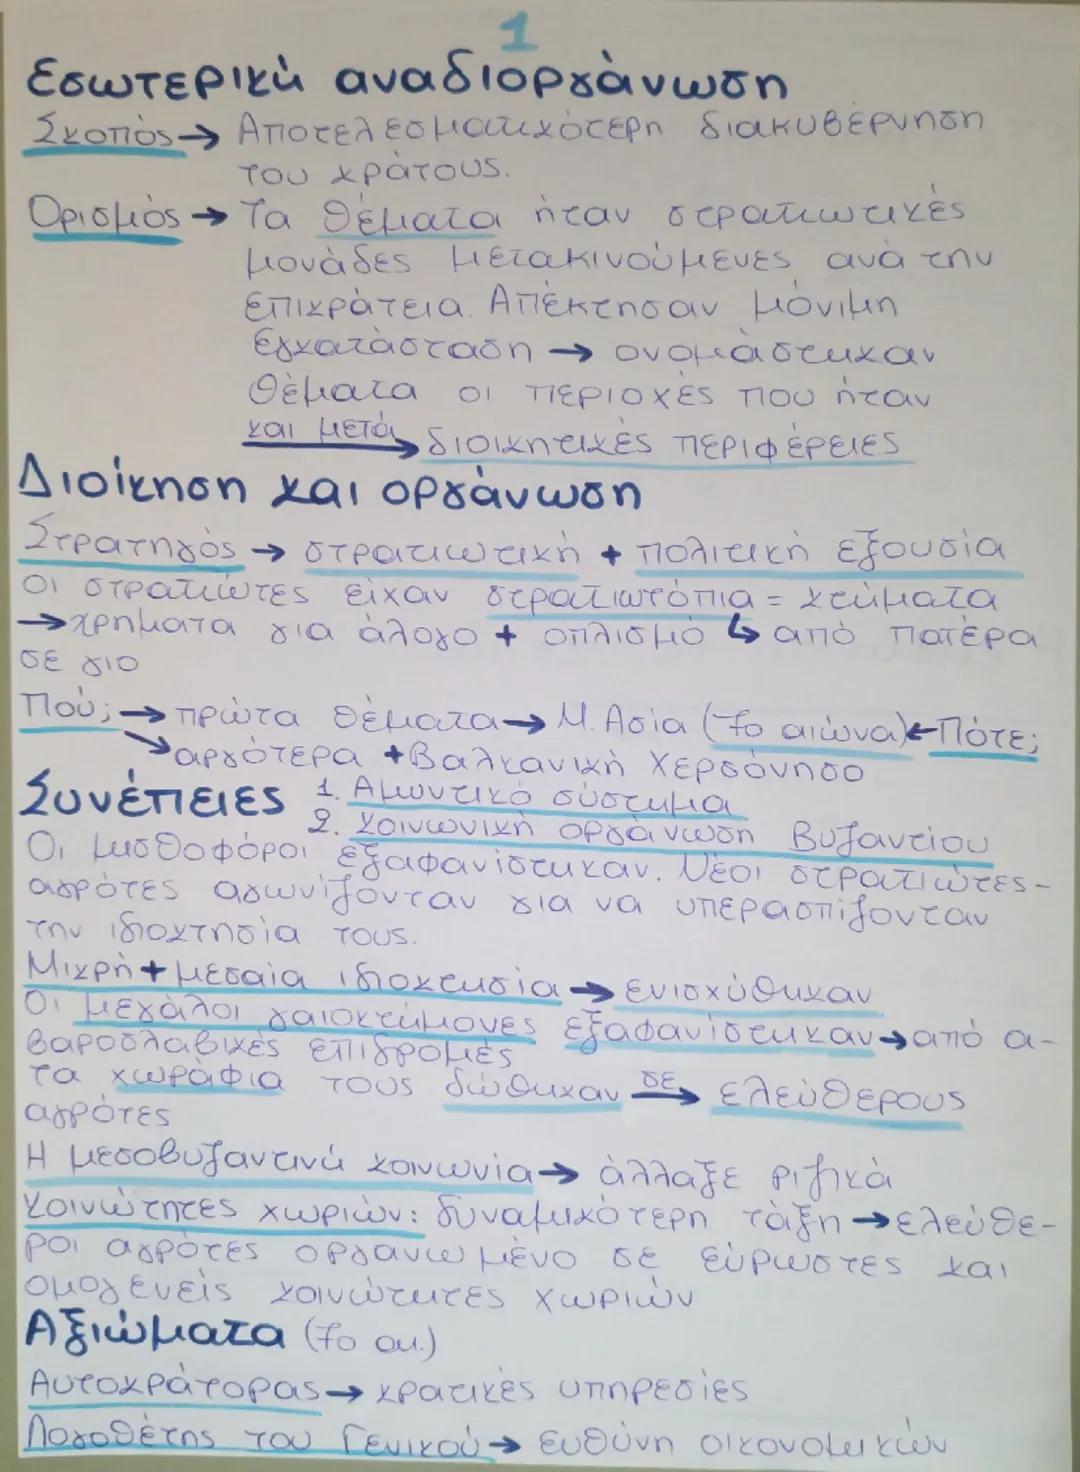 1
Εσωτερική αναδιοργάνωση
Σκοπός → Αποτελεσματικότερη διακυβέρνηση
του κράτους.
Ορισμός → Τα θέματα ήταν στρατιωτικές
μονάδες μετακινούμενες ανά την
επικράτεια. Απέκτησαν μόνιμη
εγκατάσταση → ονομάστηκαν
θέματα οι περιοχές που ήταν
και μετά → διοικητικές περιφέρειες
Διοίκηση και οργάνωση
Στρατηγός → στρατιωτική + πολιτική εξουσία
Οι στρατιώτες είχαν στρατιωτόπια = κτήματα
→ χρήματα για άλογο + οπλισμό ↳ από πατέρα
σε γιο
Πού; → πρώτα θέματα → Μ. Ασία (7ο αιώνα) ← Πότε;
↘ αργότερα + Βαλκανική Χερσόνησο
Συνέπειες 1. Αμυντικό σύστημα
2. κοινωνική οργάνωση Βυζαντίου
Οι μισθοφόροι εξαφανίστηκαν. Νέοι στρατιώτες-
αγρότες αγωνίζονταν για να υπερασπίζονταν
την ιδιοκτησία τους.
Μικρή + μεσαία ιδιοκτησία → ενισχύθηκαν
Οι μεγάλοι γαιοκτήμονες εξαφανίστηκαν → από α-
βαροσλαβικές επιδρομές
τα χωράφια τους δώθηκαν σε → ελεύθερους
αγρότες
Η μεσοβυζαντινή κοινωνία → άλλαξε ριζικά
Κοινώτητες χωριών: δυναμικότερη τάξη → ελεύθε-
ροι αγρότες οργανωμένο σε εύρωστες και
ομογενείς κοινώτητες χωριών
Αξιώματα (7ο αι.)
Αυτοκράτορας → κρατικές υπηρεσίες
Λογοθέτης του Γενικού → ευθύνη οικονομικών